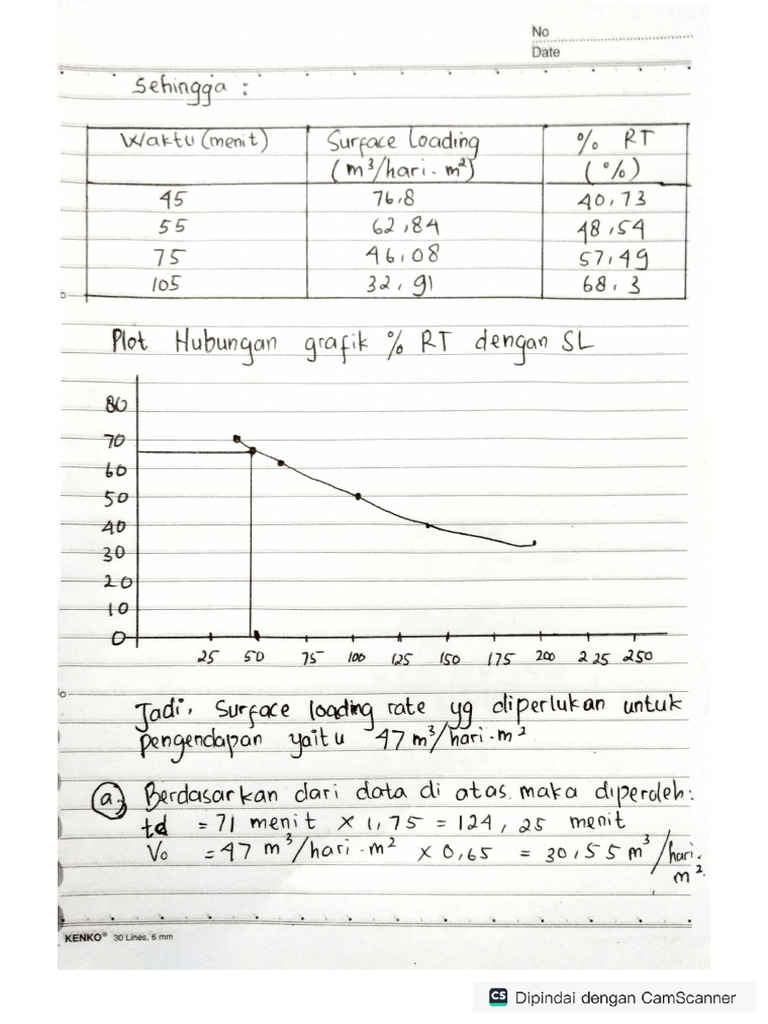 No
Date
Sehingga :
Waktu (menit) Surface Loading % RT
(m³/hari . m²) (%)
45 76,8 40,73
55 62,84 48,54
75 46,08 57,49
105 32,91 68,3
Plot Hubungan grafik % RT dengan SL
80
70
60
50
40
30
20
10
0
25 50 75 100 125 150 175 200 225 250
Jadi, Surface loading rate yg diperlukan untuk
pengendapan yaitu 47 m³/hari.m²
a) Berdasarkan dari data di atas maka diperoleh:
td = 71 menit x 1,75 = 124,25 menit
Vo = 47 m³/hari.m² x 0,65 = 30,55 m³/hari.
m².
KENKO® 30 Lines, 6 mm
CS Dipindai dengan CamScanner